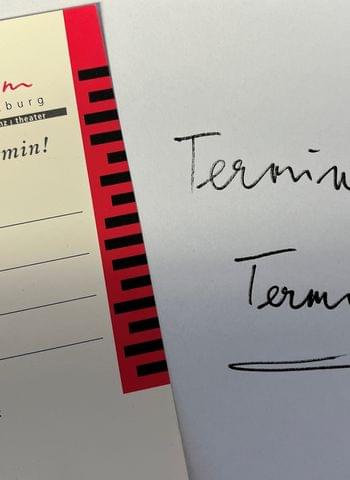 m
burg
nz | theater
min!
Termin
Term